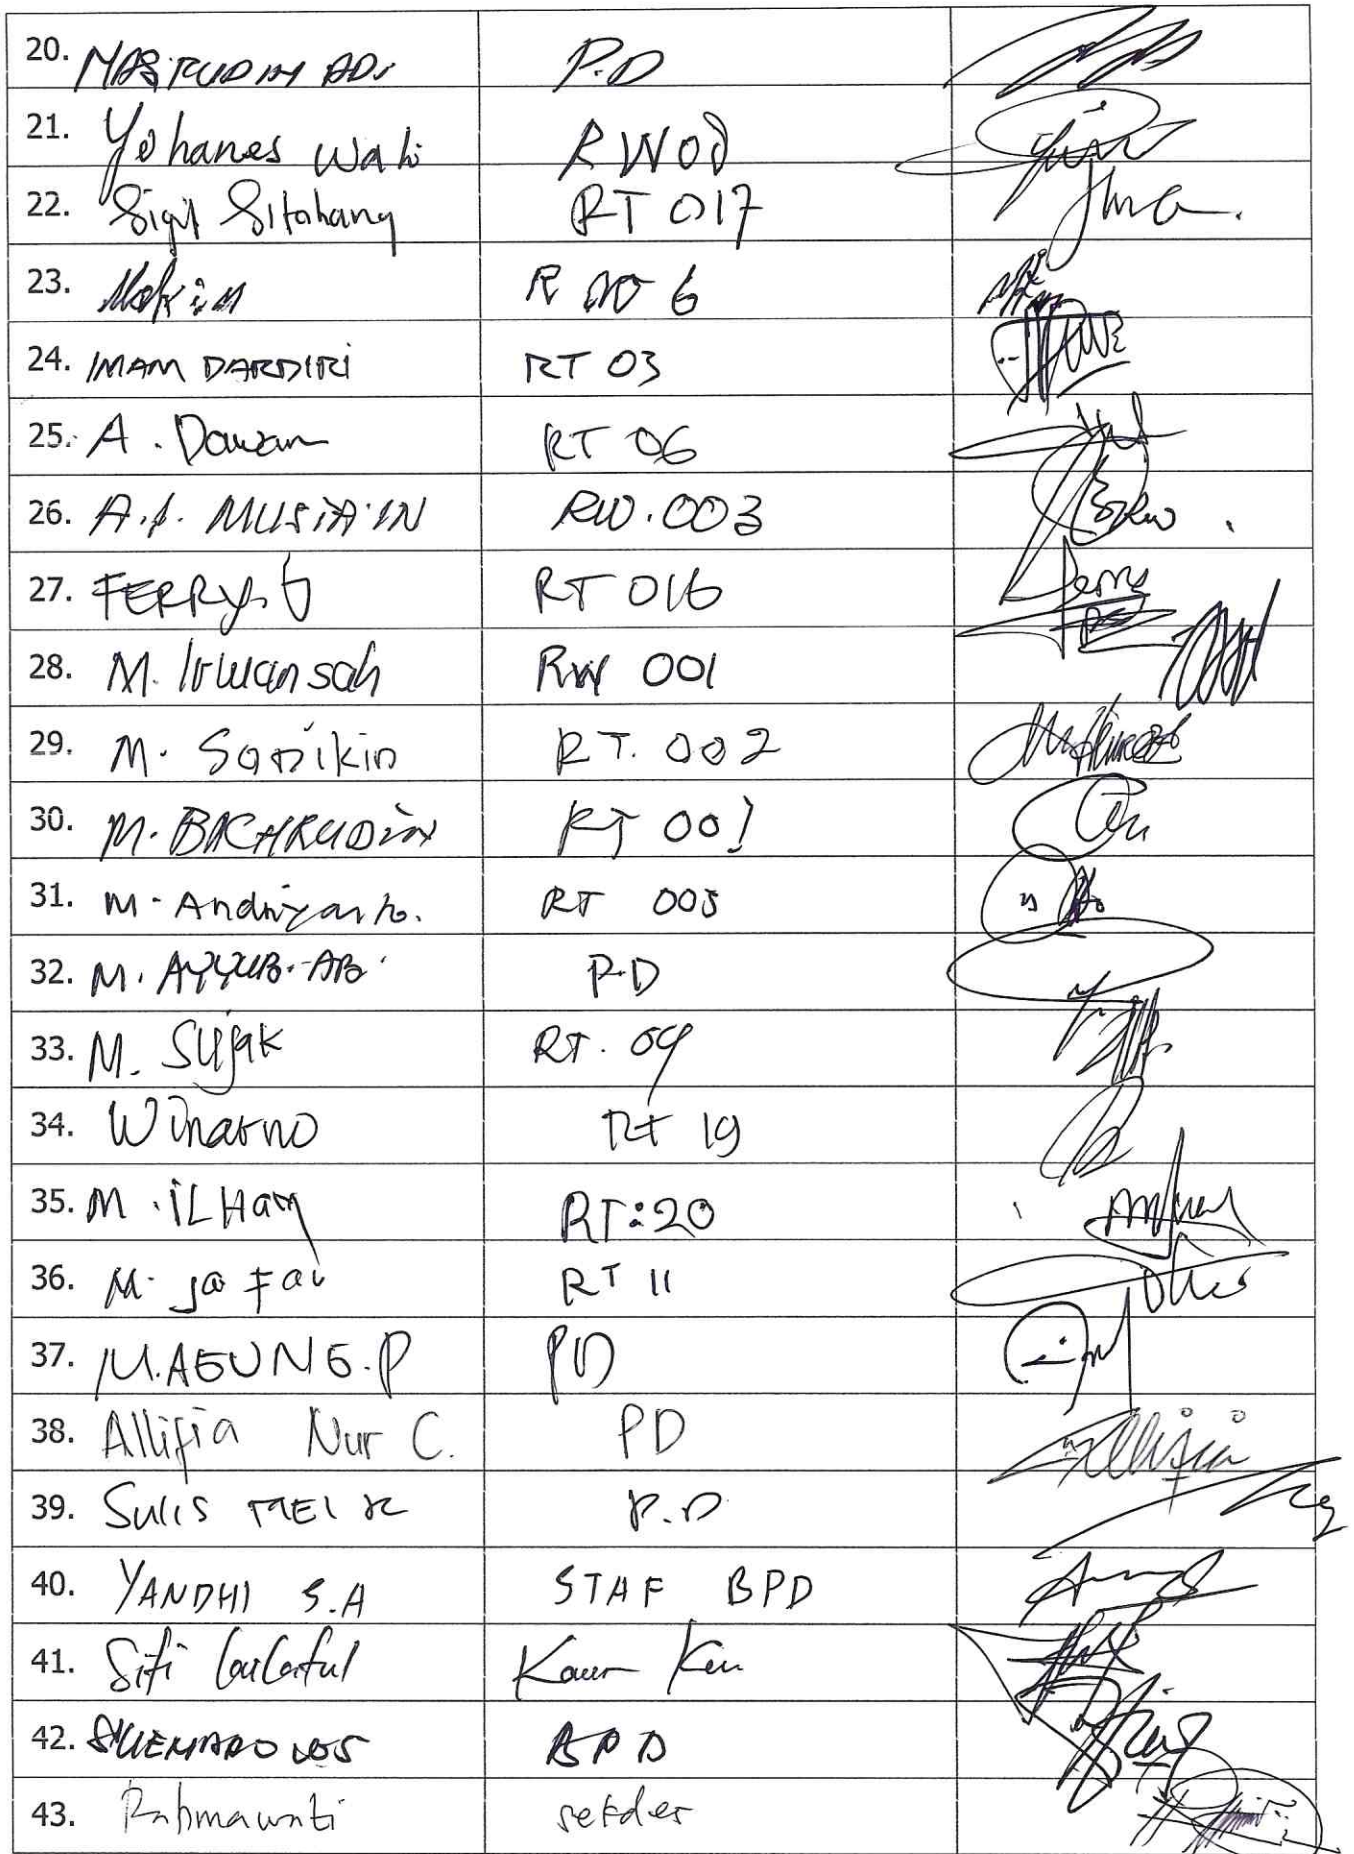 20. NASRUDIN ADI P.D
21. Yohanes Wahi RW 08
22. Sigit Sitohang RT 017
23. Mokim RW 6
24. IMAM DARDIRI RT 03
25. A. Dawam RT 06
26. A.S. MUSTA'IN RW.003
27. FERRY. G RT 016
28. M. Irwansah RW 001
29. M. Sodikin RT. 002
30. M. BACHRUDIN RT 001
31. M. Andriyanto. RT 005
32. M. AYYUB. AB. P.D
33. M. Sujak RT. 09
34. Winarno RT 19
35. M. ILHAM RT: 20
36. M. Ja Far RT 11
37. M. AGUNG. P PD
38. Allifia Nur C. PD
39. Sulis MEI P.D
40. YANDHI S.A STAF BPD
41. Siti Kaur Keu
42. BPD
43. Rahmawati sekdes